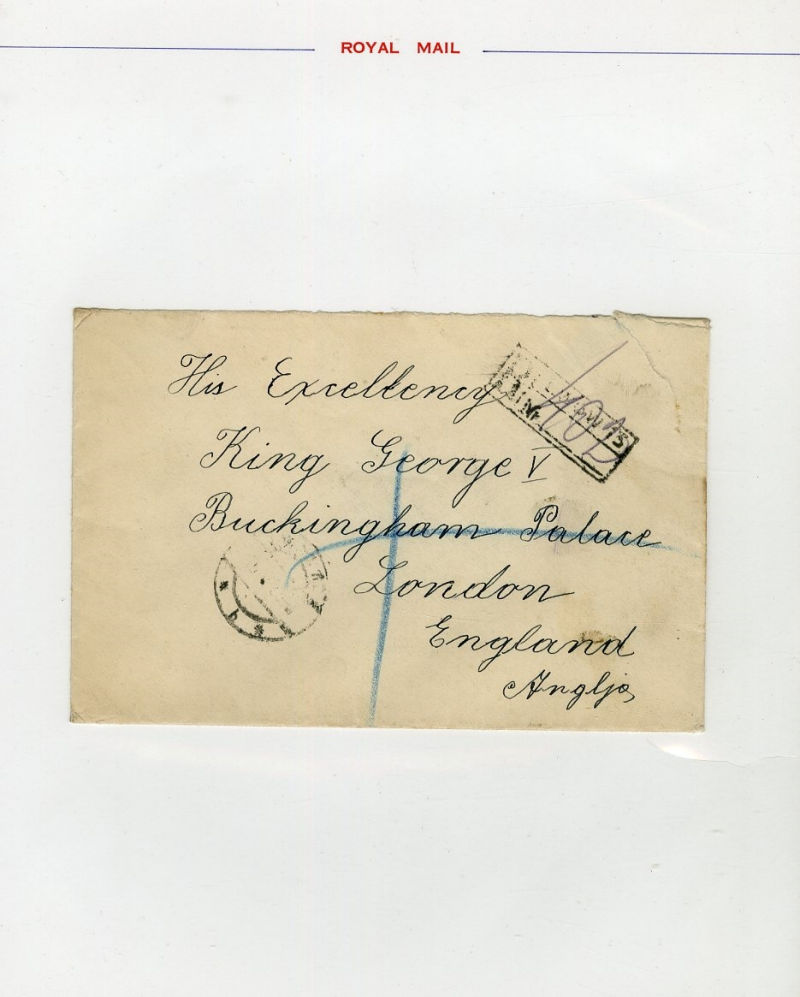 ROYAL MAIL
His Excellency
King George V
Buckingham Palace
London
England
Anglja